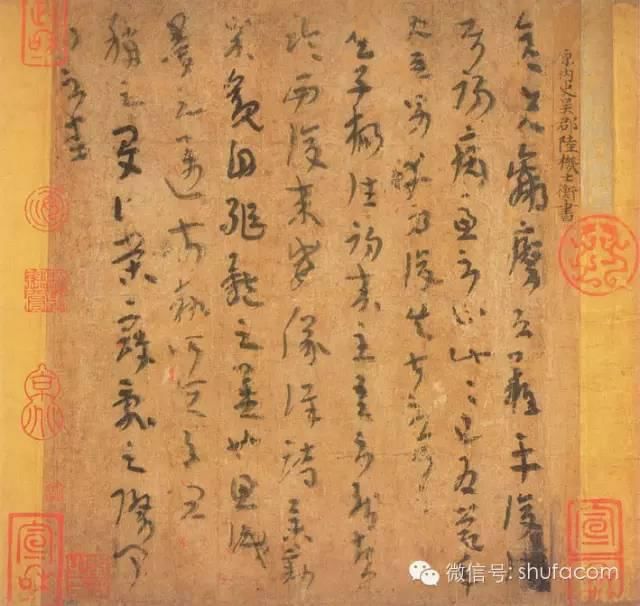 原内史吳郡陸機士衡書
彦先羸瘵恐難平復往屬
初病慮不止此此已為慶承
使唯男幸為復失前憂耳
吳子楊往初來主吾不能盡
臨西復來威儀詳跱舉動成
觀自軀體之美也思識
量之邁前執所恒有宜
稱之夏伯榮寇亂之際聞
問不悉
微信号: shufacom